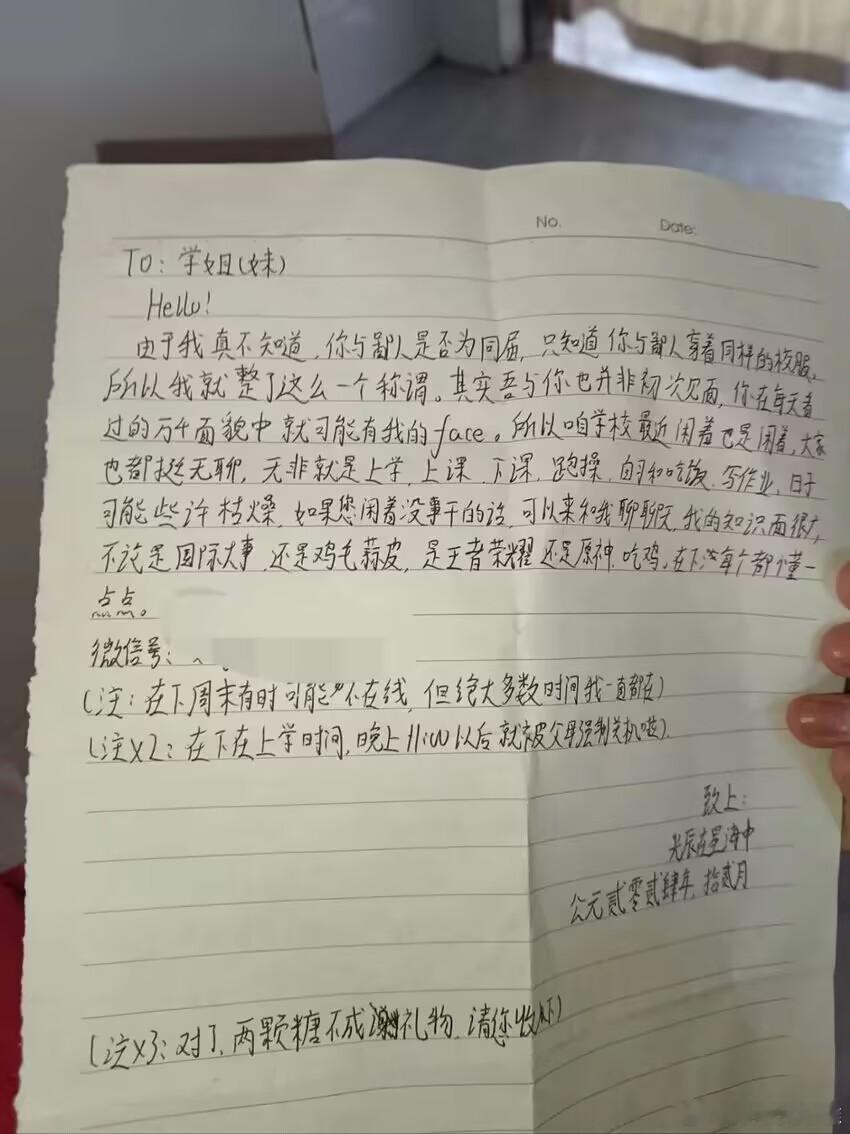 No. Date:
TO: 学姐(妹)
Hello!
由于我真不知道，你与鄙人是否为同届，只知道你与鄙人穿着同样的校服。
所以我就整了这么一个称谓。其实吾与你也并非初次见面，你在每天看
过的万千面貌中就可能有我的face。所以咱学校最近闲着也是闲着，大家
也都挺无聊，无非就是上学，上课，下课，跑操，自习和吃饭，写作业，日子
可能些许枯燥，如果您闲着没事干的话，可以来和我聊聊天，我的知识面很大，
不论是国际大事，还是鸡毛蒜皮，是王者荣耀还是原神，吃鸡，在下每个都懂一
点点。
微信号：
(注：在下周末有时可能不在线，但绝大多数时间我一直都在)
(注X2：在下在上学时间，晚上11:00以后就被父母强制关机啦)
致上：
光辰在星海中
公元贰零贰肆年，拾贰月
(注X3：对了，两颗糖不成礼物，请您收下)